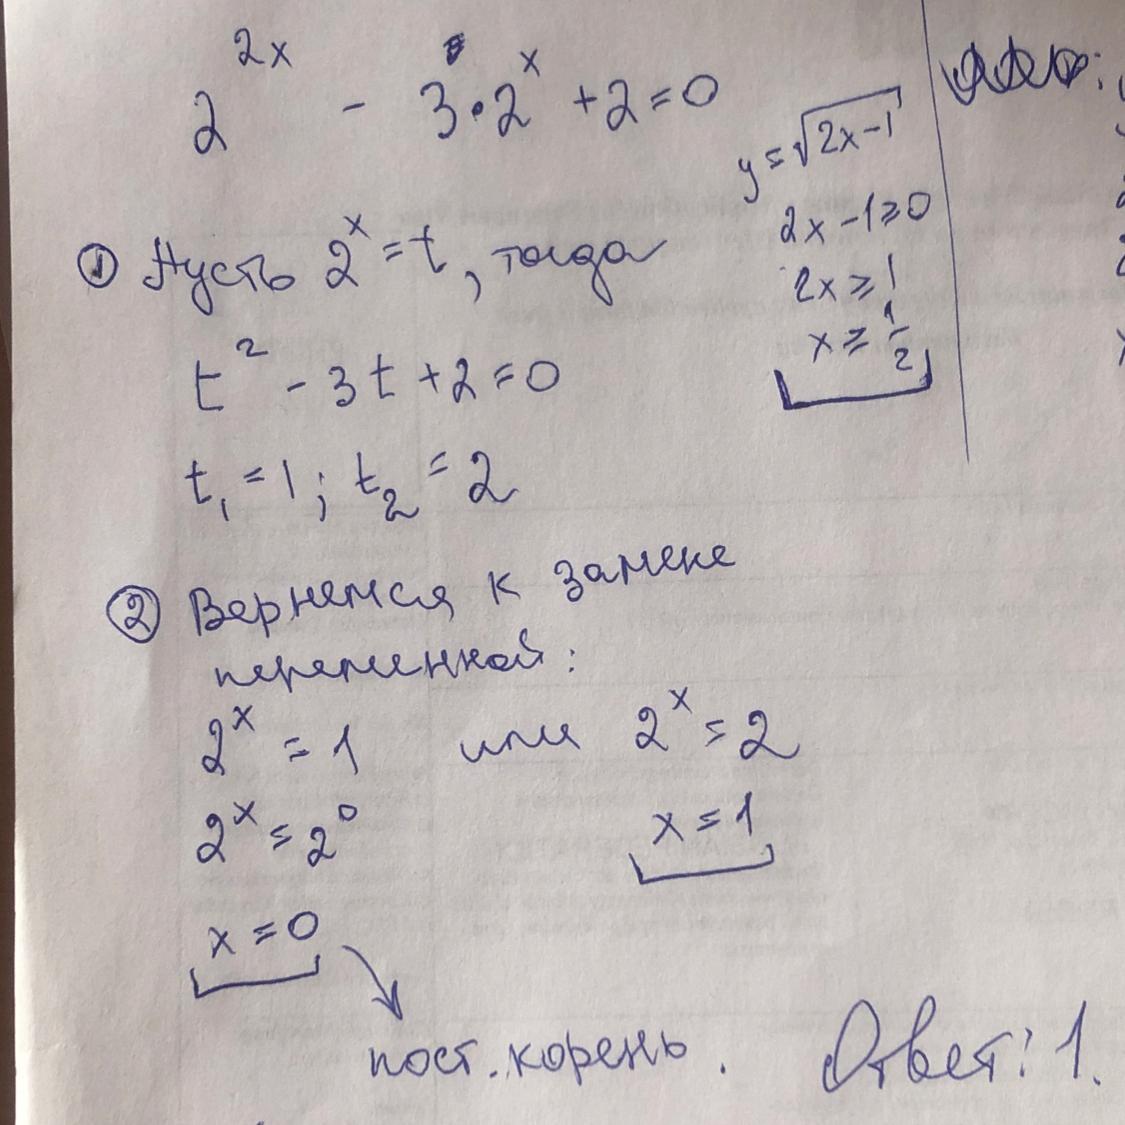 2^{2x} - 3·2^x + 2 = 0
① Пусть 2^x = t, тогда
t^2 - 3t + 2 = 0
t_1 = 1; t_2 = 2
② Вернемся к замене
переменной:
2^x = 1 или 2^x = 2
2^x = 2^0 x = 1
x = 0
пост. корень.
Ответ: 1.
y = √(2x-1)
2x - 1 ≥ 0
2x ≥ 1
x ≥ 1/2